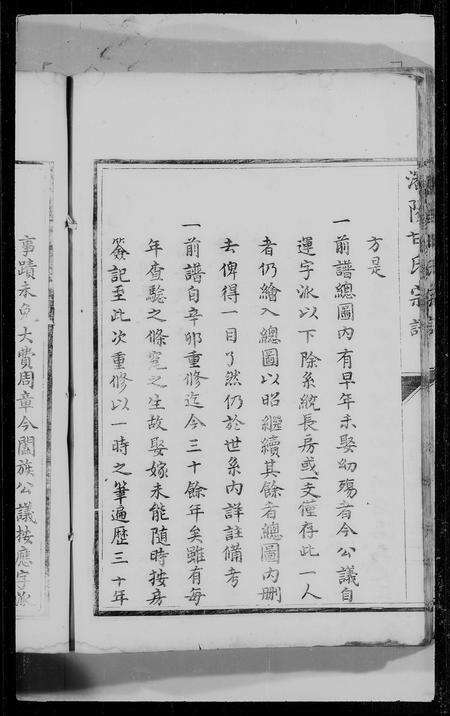 瀋陽甘氏宗譜
方是
一前譜總圖內有早年未娶幼殤者今公議自
運字派以下除系統長房或一支僅存此一人
者仍繪入總圖以昭繼續其餘者總圖內刪
去俾得一目了然仍於世系內詳註備考
一前譜自辛卯重修迄今三十餘年矣雖有每
年查驗之條寬之生故娶嫁未能隨時按房
簽記至此次重修以一時之筆遍歷三十年
事蹟未免大費周章今闔族公議按應字派